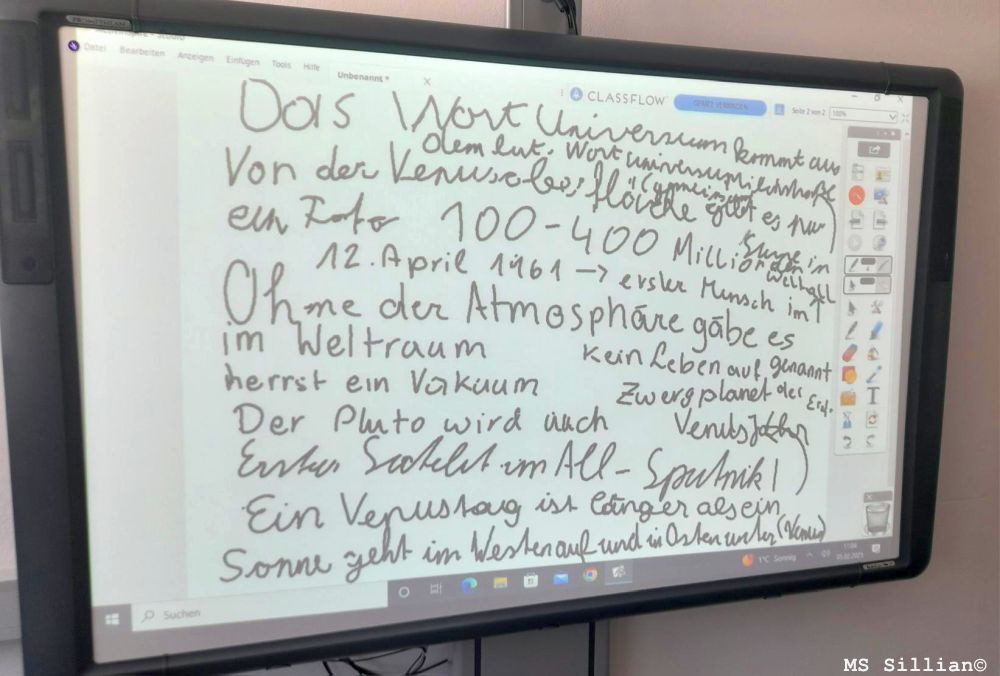 PROMETHEAN
Datei Bearbeiten Anzeigen Einfügen Tools Hilfe
Unbenannt * ×
CLASSFLOW
Seite 2 von 2
100%
Das Wort Universum kommt aus
dem lat. Wort universum
Von der Venusoberfläche gibt es nur
ein Foto 100-400 Milliarden
Sterne in
Weltall
12. April 1961 → erster Mensch im
Ohne der Atmosphäre gäbe es
im Weltraum kein Leben auf genannt
herrst ein Vakuum Zwergplanet der Erd.
Der Pluto wird auch Venusjahr
Erster Satelit im All - Sputnik 1
Ein Venustag ist länger als ein
Sonne geht im Westen auf und in Osten unter (Venus)
Suchen
1°C Sonnig
MS Sillian©